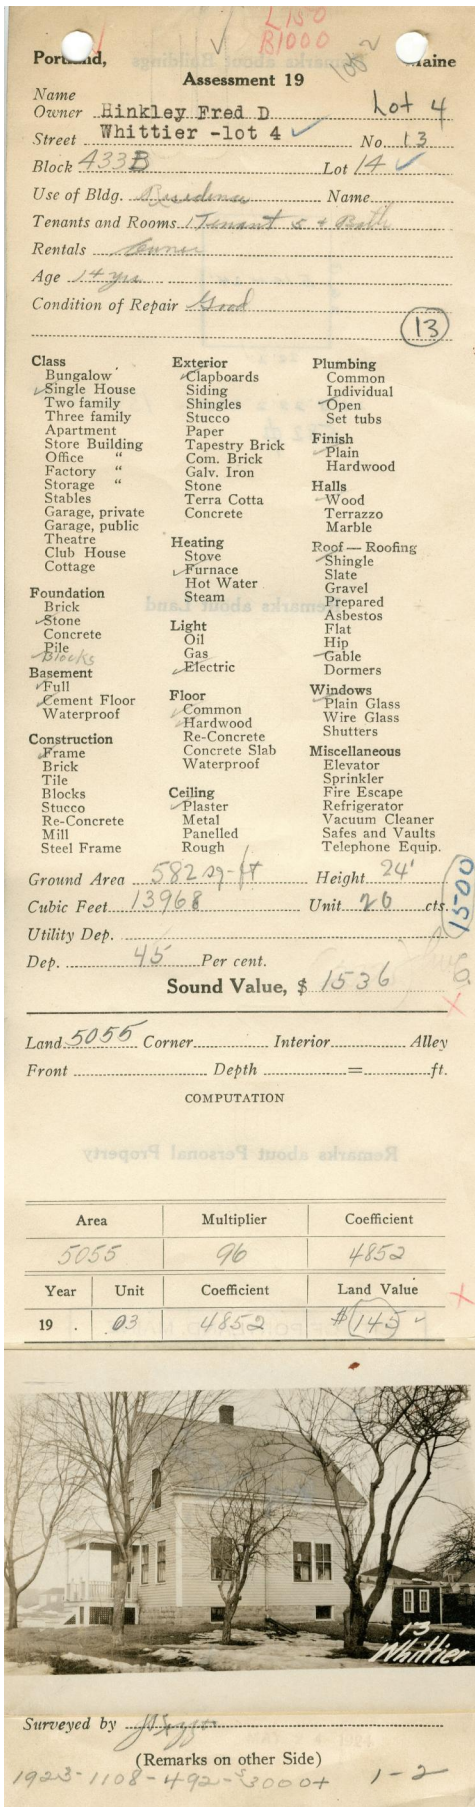 L150
B1000
Portland, Maine
Assessment 19
Name
Owner Hinkley Fred D Lot 4
Street Whittier -lot 4 No. 13
Block 433B Lot 14
Use of Bldg. Residence Name
Tenants and Rooms 1 Tenant 5 + Bath
Rentals Owner
Age 14 yrs
Condition of Repair Good
13
Class
Bungalow
Single House
Two family
Three family
Apartment
Store Building
Office "
Factory "
Storage "
Stables
Garage, private
Garage, public
Theatre
Club House
Cottage
Foundation
Brick
Stone
Concrete
Pile
Blocks
Basement
Full
Cement Floor
Waterproof
Construction
Frame
Brick
Tile
Blocks
Stucco
Re-Concrete
Mill
Steel Frame
Exterior
Clapboards
Siding
Shingles
Stucco
Paper
Tapestry Brick
Com. Brick
Galv. Iron
Stone
Terra Cotta
Concrete
Heating
Stove
Furnace
Hot Water
Steam
Light
Oil
Gas
Electric
Floor
Common
Hardwood
Re-Concrete
Concrete Slab
Waterproof
Ceiling
Plaster
Metal
Panelled
Rough
Plumbing
Common
Individual
Open
Set tubs
Finish
Plain
Hardwood
Halls
Wood
Terrazzo
Marble
Roof — Roofing
Shingle
Slate
Gravel
Prepared
Asbestos
Flat
Hip
Gable
Dormers
Windows
Plain Glass
Wire Glass
Shutters
Miscellaneous
Elevator
Sprinkler
Fire Escape
Refrigerator
Vacuum Cleaner
Safes and Vaults
Telephone Equip.
Ground Area 582 sq-ft Height 24'
Cubic Feet 13968 Unit 20 cts.
1500
Utility Dep.
Dep. 45 Per cent.
Sound Value, $ 1536
Land 5055 Corner Interior Alley
Front Depth = ft.
COMPUTATION
Remarks about Personal Property
Area Multiplier Coefficient
5055 96 4852
Year Unit Coefficient Land Value
19 . 03 4852 $145
13
Whittier
Surveyed by
(Remarks on other Side)
1923-1108-492-$3000+ 1-2